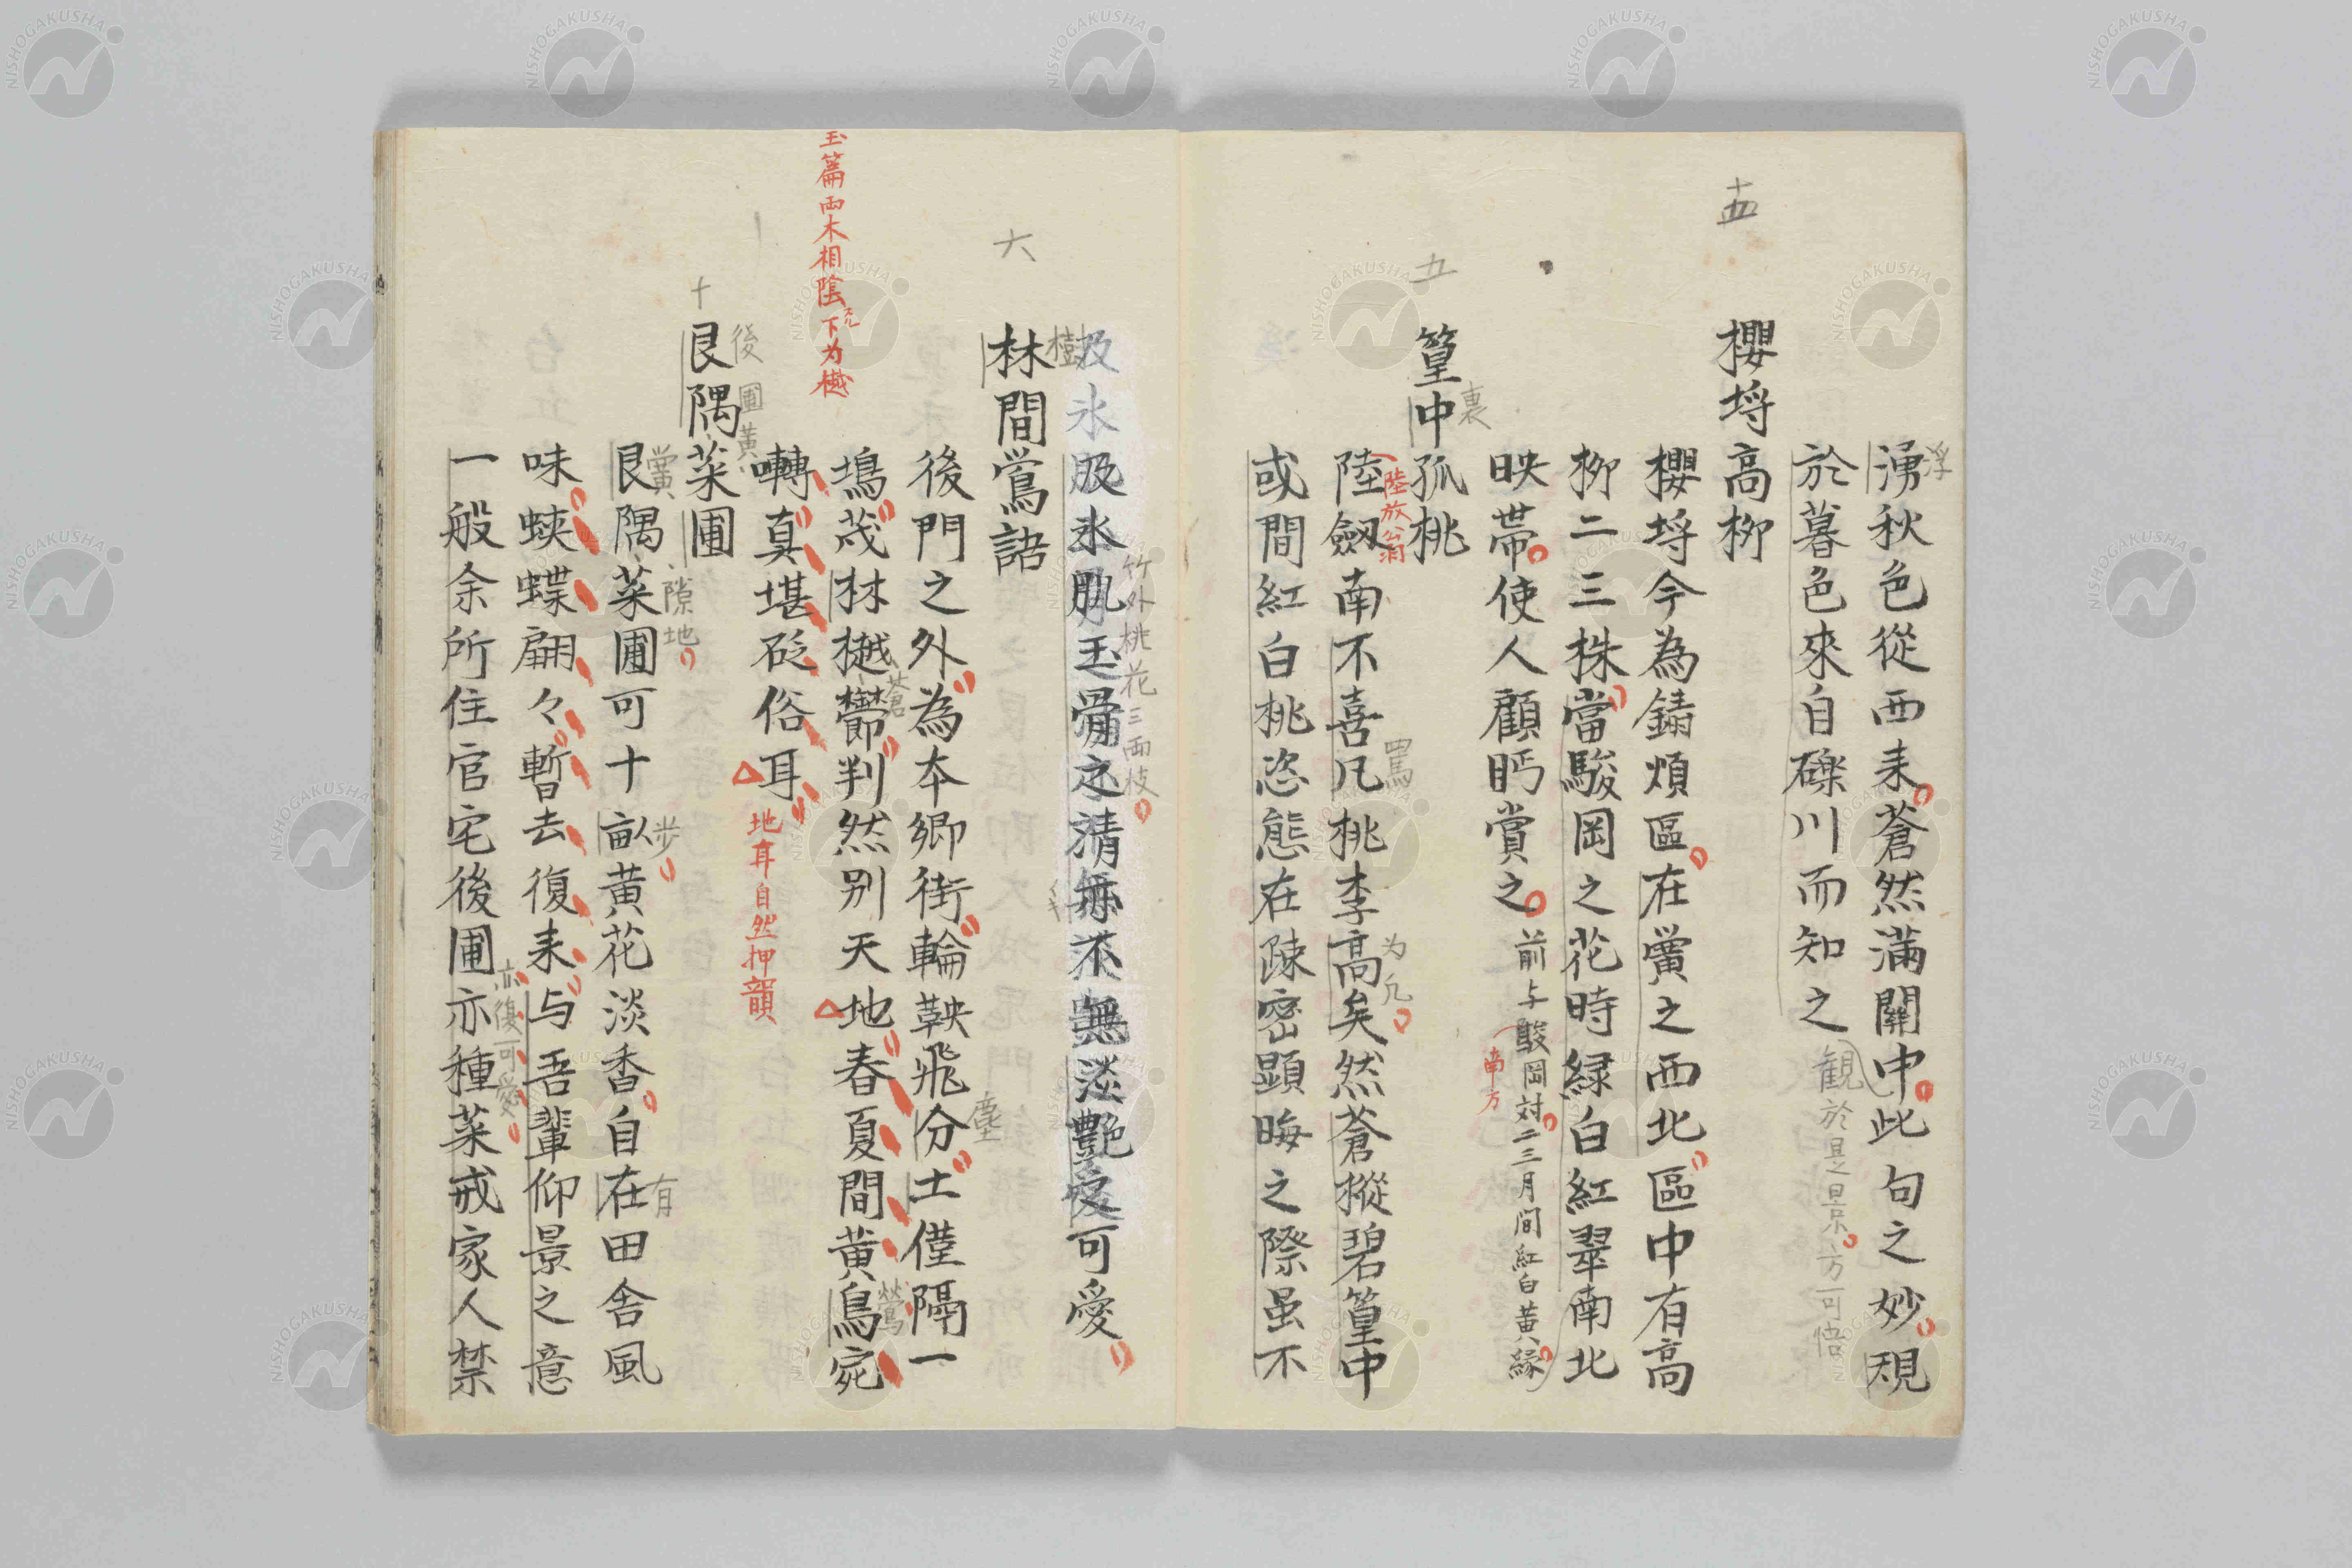 十五
湧秋色從西来蒼然滿關中此句之妙規
浮
於暮色來自礫川而知之
観於是景方可悟
櫻埒高柳
櫻埒今為鏽煩區在黌之西北區中有高
柳二三株當駿岡之花時緑白紅翠南北
映帯使人顧眄賞之前与駿岡対二三月間紅白黄緑
南方
五
篁中孤桃
裏
陸放翁
陸劔南不喜凡桃李高矣然蒼樅碧篁中
罵
为凡
或間紅白桃恣態在疎密顕晦之際虽不
竹外桃花三両枝
汲氷肌玉骨之清無淡艶可愛
六
林間鶯語
樹
後門之外為本郷街輪鞅飛分土僅隔一
塵
塢茂林樾欝判然別天地春夏間黄鳥宛
蒼
鶯
玉篇両木相陰下为樾
囀真堪砭俗耳
地耳自然押韻
十
艮隅菜圃
後圃黄
艮隅菜圃可十畝黄花淡香自在田舎風
黌
隙地
歩
有
味蛺蝶翩々暫去復来与吾輩仰景之意
亦復可愛
一般余所住官宅後圃亦種菜戒家人禁
NISHOGAKUSHA